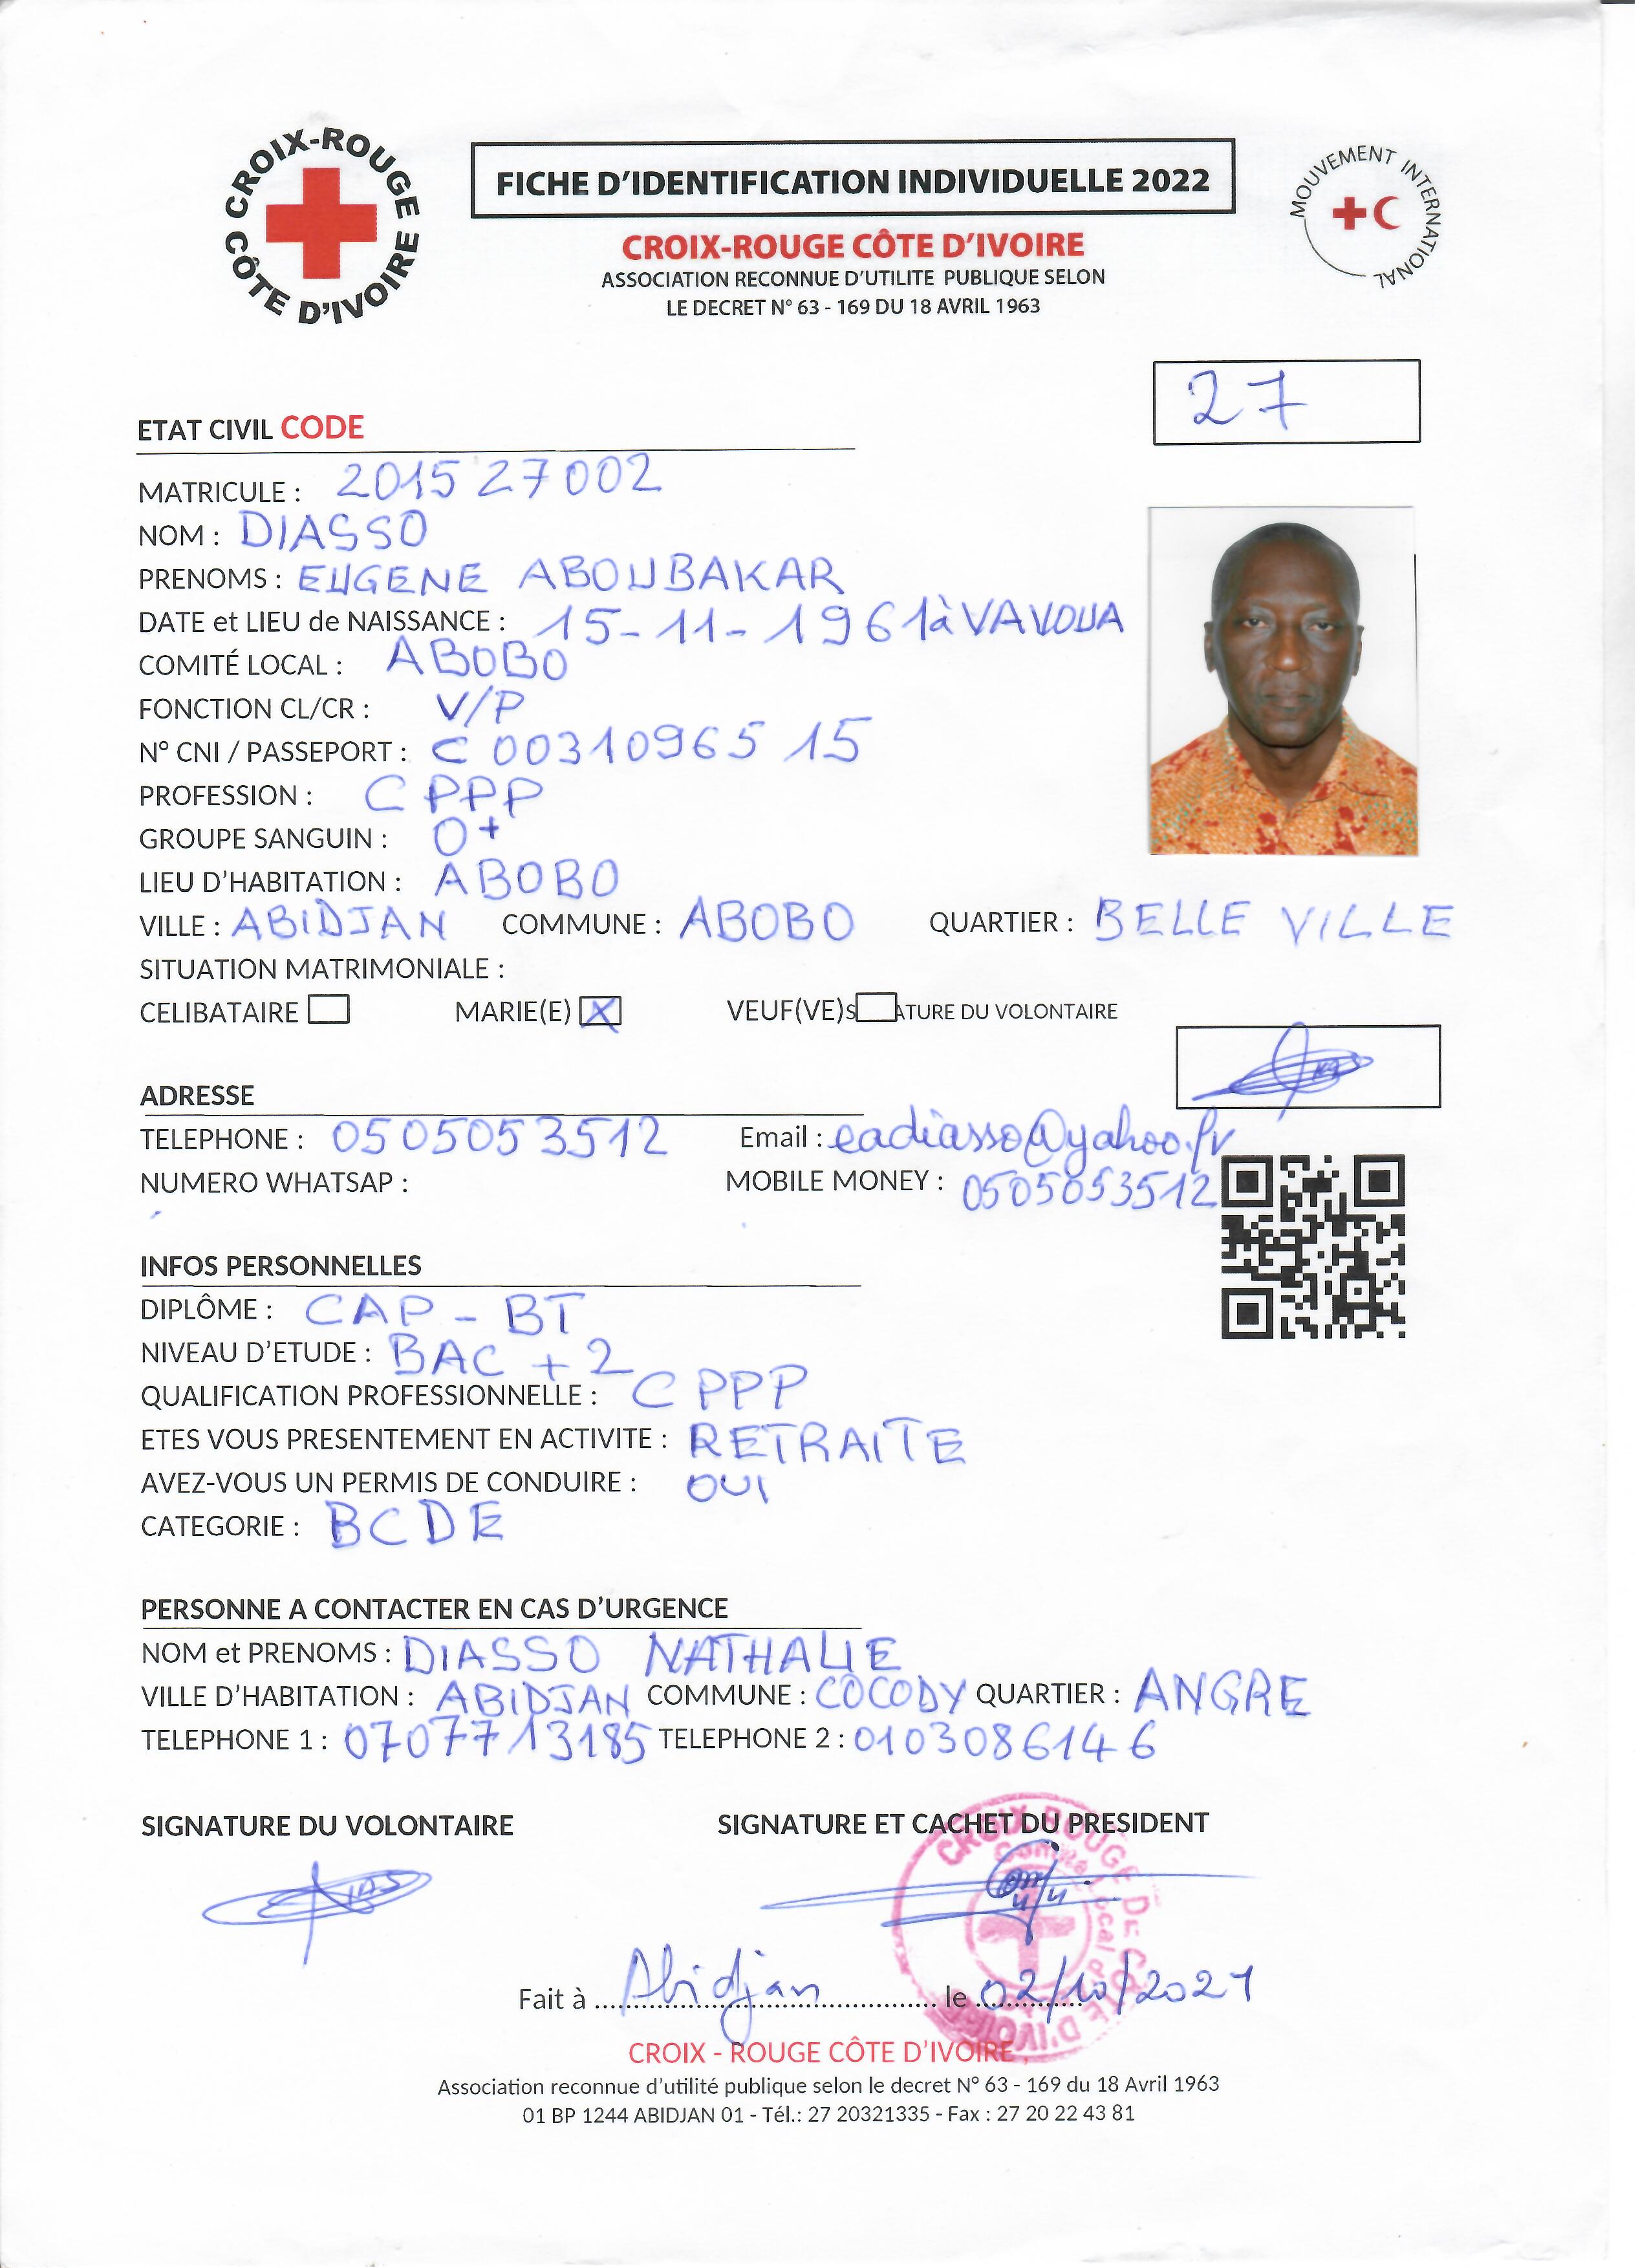 CROIX-ROUGE CÔTE D'IVOIRE
FICHE D'IDENTIFICATION INDIVIDUELLE 2022
MOUVEMENT INTERNATIONAL
CROIX-ROUGE CÔTE D'IVOIRE
ASSOCIATION RECONNUE D'UTILITE PUBLIQUE SELON
LE DECRET N° 63 - 169 DU 18 AVRIL 1963
27
ETAT CIVIL CODE
MATRICULE : 2015 27002
NOM : DIASSO
PRENOMS : EUGENE ABOUBAKAR
DATE et LIEU de NAISSANCE : 15-11-1961 à VAVOUA
COMITÉ LOCAL : ABOBO
FONCTION CL/CR : V/P
N° CNI / PASSEPORT : C 00310965 15
PROFESSION : CPPP
GROUPE SANGUIN : O+
LIEU D'HABITATION : ABOBO
VILLE : ABIDJAN COMMUNE : ABOBO QUARTIER : BELLE VILLE
SITUATION MATRIMONIALE :
CELIBATAIRE MARIE(E) X VEUF(VE) S ATURE DU VOLONTAIRE
ADRESSE
TELEPHONE : 0505053512 Email : eadiasso@yahoo.fr
NUMERO WHATSAP : MOBILE MONEY : 0505053512
INFOS PERSONNELLES
DIPLÔME : CAP - BT
NIVEAU D'ETUDE : BAC + 2
QUALIFICATION PROFESSIONNELLE : CPPP
ETES VOUS PRESENTEMENT EN ACTIVITE : RETRAITE
AVEZ-VOUS UN PERMIS DE CONDUIRE : OUI
CATEGORIE : BCDE
PERSONNE A CONTACTER EN CAS D'URGENCE
NOM et PRENOMS : DIASSO NATHALIE
VILLE D'HABITATION : ABIDJAN COMMUNE : COCODY QUARTIER : ANGRE
TELEPHONE 1 : 0707713185 TELEPHONE 2 : 0103086146
SIGNATURE DU VOLONTAIRE SIGNATURE ET CACHET DU PRESIDENT
CROIX ROUGE DE CÔTE D'IVOIRE
Comité Local
Fait à Abidjan le 02/10/2021
CROIX - ROUGE CÔTE D'IVOIRE
Association reconnue d'utilité publique selon le decret N° 63 - 169 du 18 Avril 1963
01 BP 1244 ABIDJAN 01 - Tél.: 27 20321335 - Fax : 27 20 22 43 81